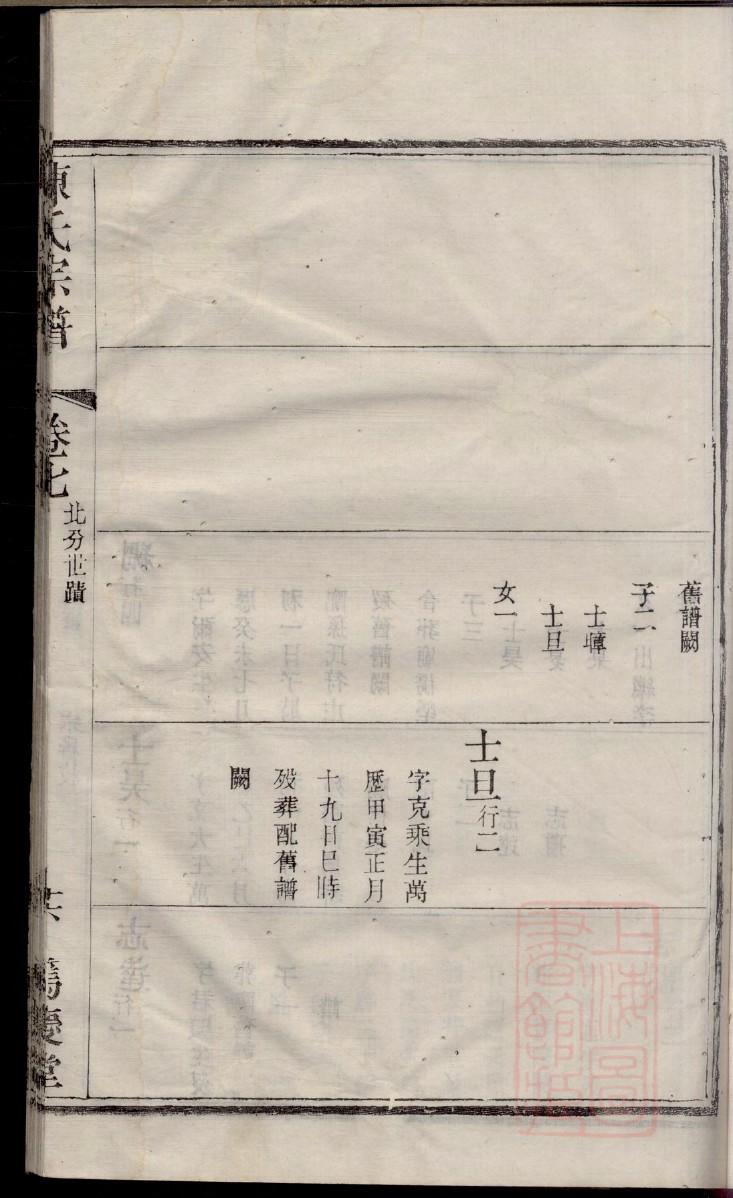 舊譜闕
子二
士暲
士旦
女一
士旦行二
字克乘生萬
歷甲寅正月
十九日巳時
歿葬配舊譜
闕
陳氏宗譜
卷七
北分世蹟
篤慶堂
上海圖
書館藏